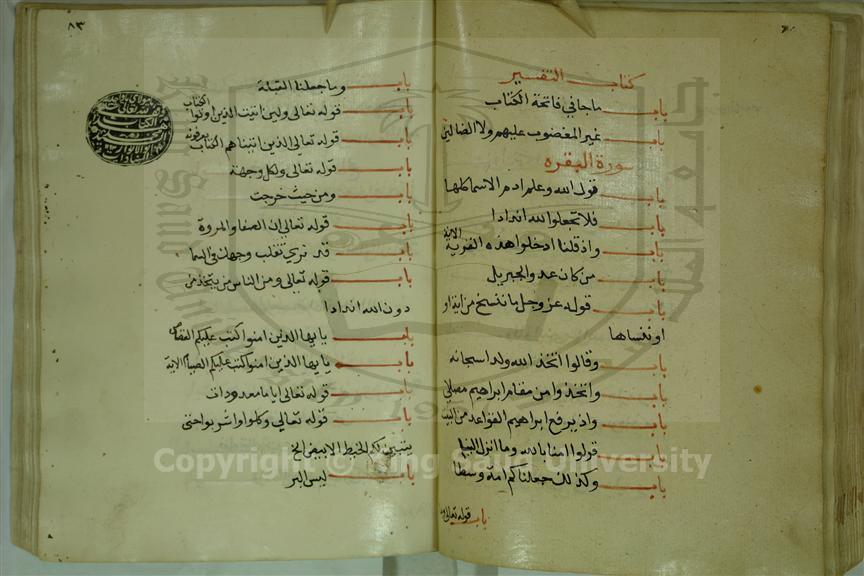 كتاب التفسير
باب ما جا في فاتحة الكتاب
باب غير المغضوب عليهم ولا الضالين
سورة البقره
باب قول الله وعلم ادم الاسما كلها
باب فلا تجعلوا لله اندادا
باب واذ قلنا ادخلوا هذه القرية الاية
باب من كان عدوا لجبريل
باب قوله عز وجل ما ننسخ من اية او
او ننساها
باب وقالوا اتخذ الله ولدا سبحانه
باب واتخذوا من مقام ابراهيم مصلى
باب واذ يرفع ابراهيم القواعد من البيت
باب قولوا امنا بالله وما انزل الينا
باب وكذلك جعلناكم امة وسطا
باب قوله تعالى
٨٣
باب وما جعلنا القبلة
باب قوله تعالى ولين اتيت الذين اوتوا الكتاب
باب قوله تعالى الذين اتيناهم الكتاب يعرفونه
باب قوله تعالى ولكل وجهة
باب ومن حيث خرجت
باب قوله تعالى ان الصفا والمروة
باب قد نرى تقلب وجهك في السما
باب قوله تعالى ومن الناس من يتخذ من
دون الله اندادا
باب يا يها الذين امنوا كتب عليكم القصاص
باب يا يها الذين امنوا كتب عليكم الصيام الاية
باب قوله تعالى اياما معدودات
باب قوله تعالى وكلوا واشربوا حتى
يتبين لكم الخيط الابيض الخ
باب ليس البر
Copyright © King Saud University
King Saud University
1957